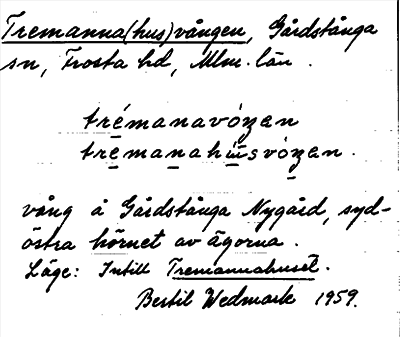 Tremanna(hus)vången, Gårdstånga
sn, Frosta hd, Mlm. län.
trémanavóʒen
tremanahu̇svóʒen.
vång å Gårdstånga Nygård, syd-
östra hörnet av ägorna.
Läge: Intill Tremannahuset.
Bertil Wedmark 1959.